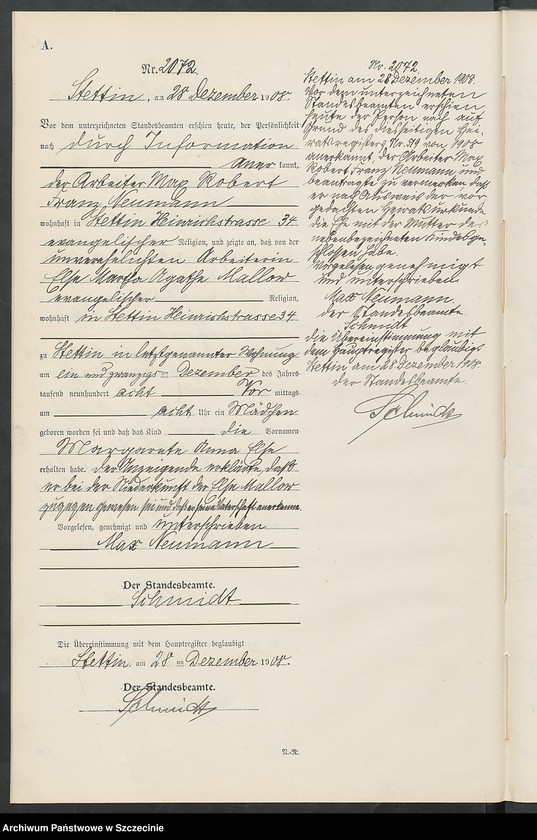 A.
Nr. 2072.
Stettin, am 28 Dezember 1908.
Vor dem unterzeichneten Standesbeamten erschien heute, der Persönlichkeit
nach durch Information
aner kannt,
der Arbeiter Max Robert
Franz Neumann
wohnhaft in Stettin Heinrichstrasse 34
evangelischer Religion, und zeigte an, daß von der
unverehelichten Arbeiterin
Else Martha Agathe Mallow
evangelischer Religion,
wohnhaft in Stettin Heinrichstrasse 34
zu Stettin in letztgenannter Wohnung
am ein und zwanzigsten Dezember des Jahres
tausend neunhundert acht Vor mittags
um acht Uhr ein Mädchen
geboren worden sei und daß das Kind die Vornamen
Margarete Anna Else
erhalten habe. Der Anzeigende erklärte, daß
er bei der Niederkunft der Else Mallow
zugegen gewesen sei und daß er seine Vaterschaft anerkenne.
Vorgelesen, genehmigt und unterschrieben
Max Neumann
Der Standesbeamte.
Schmidt
Die Übereinstimmung mit dem Hauptregister beglaubigt
Stettin, am 28 ten Dezember 1908.
Der Standesbeamte.
Schmidt
N.-R.
No. 2072.
Stettin am 28 Dezember 1908.
Vor dem unterzeichneten
Standesbeamten erschien
heute der Person nach auf
Grund des diesseitigen Hei-
ratsregisters Nr. 519 von 1908
anerkannt, der Arbeiter Max
Robert Franz Neumann und
beantragte zu vermerken, daß
er nach Ausweis der vor-
gedachten Heiratsurkunde
die Ehe mit der Mutter des
nebenbezeichneten Kindes ge-
schlossen habe.
Vorgelesen genehmigt
und unterschrieben
Max Neumann
der Standesbeamte
Schmidt
die Übereinstimmung mit
dem Hauptregister beglaubigt
Stettin am 28 Dezember 1908.
der Standesbeamte.
Schmidt
Archiwum Państwowe w Szczecinie